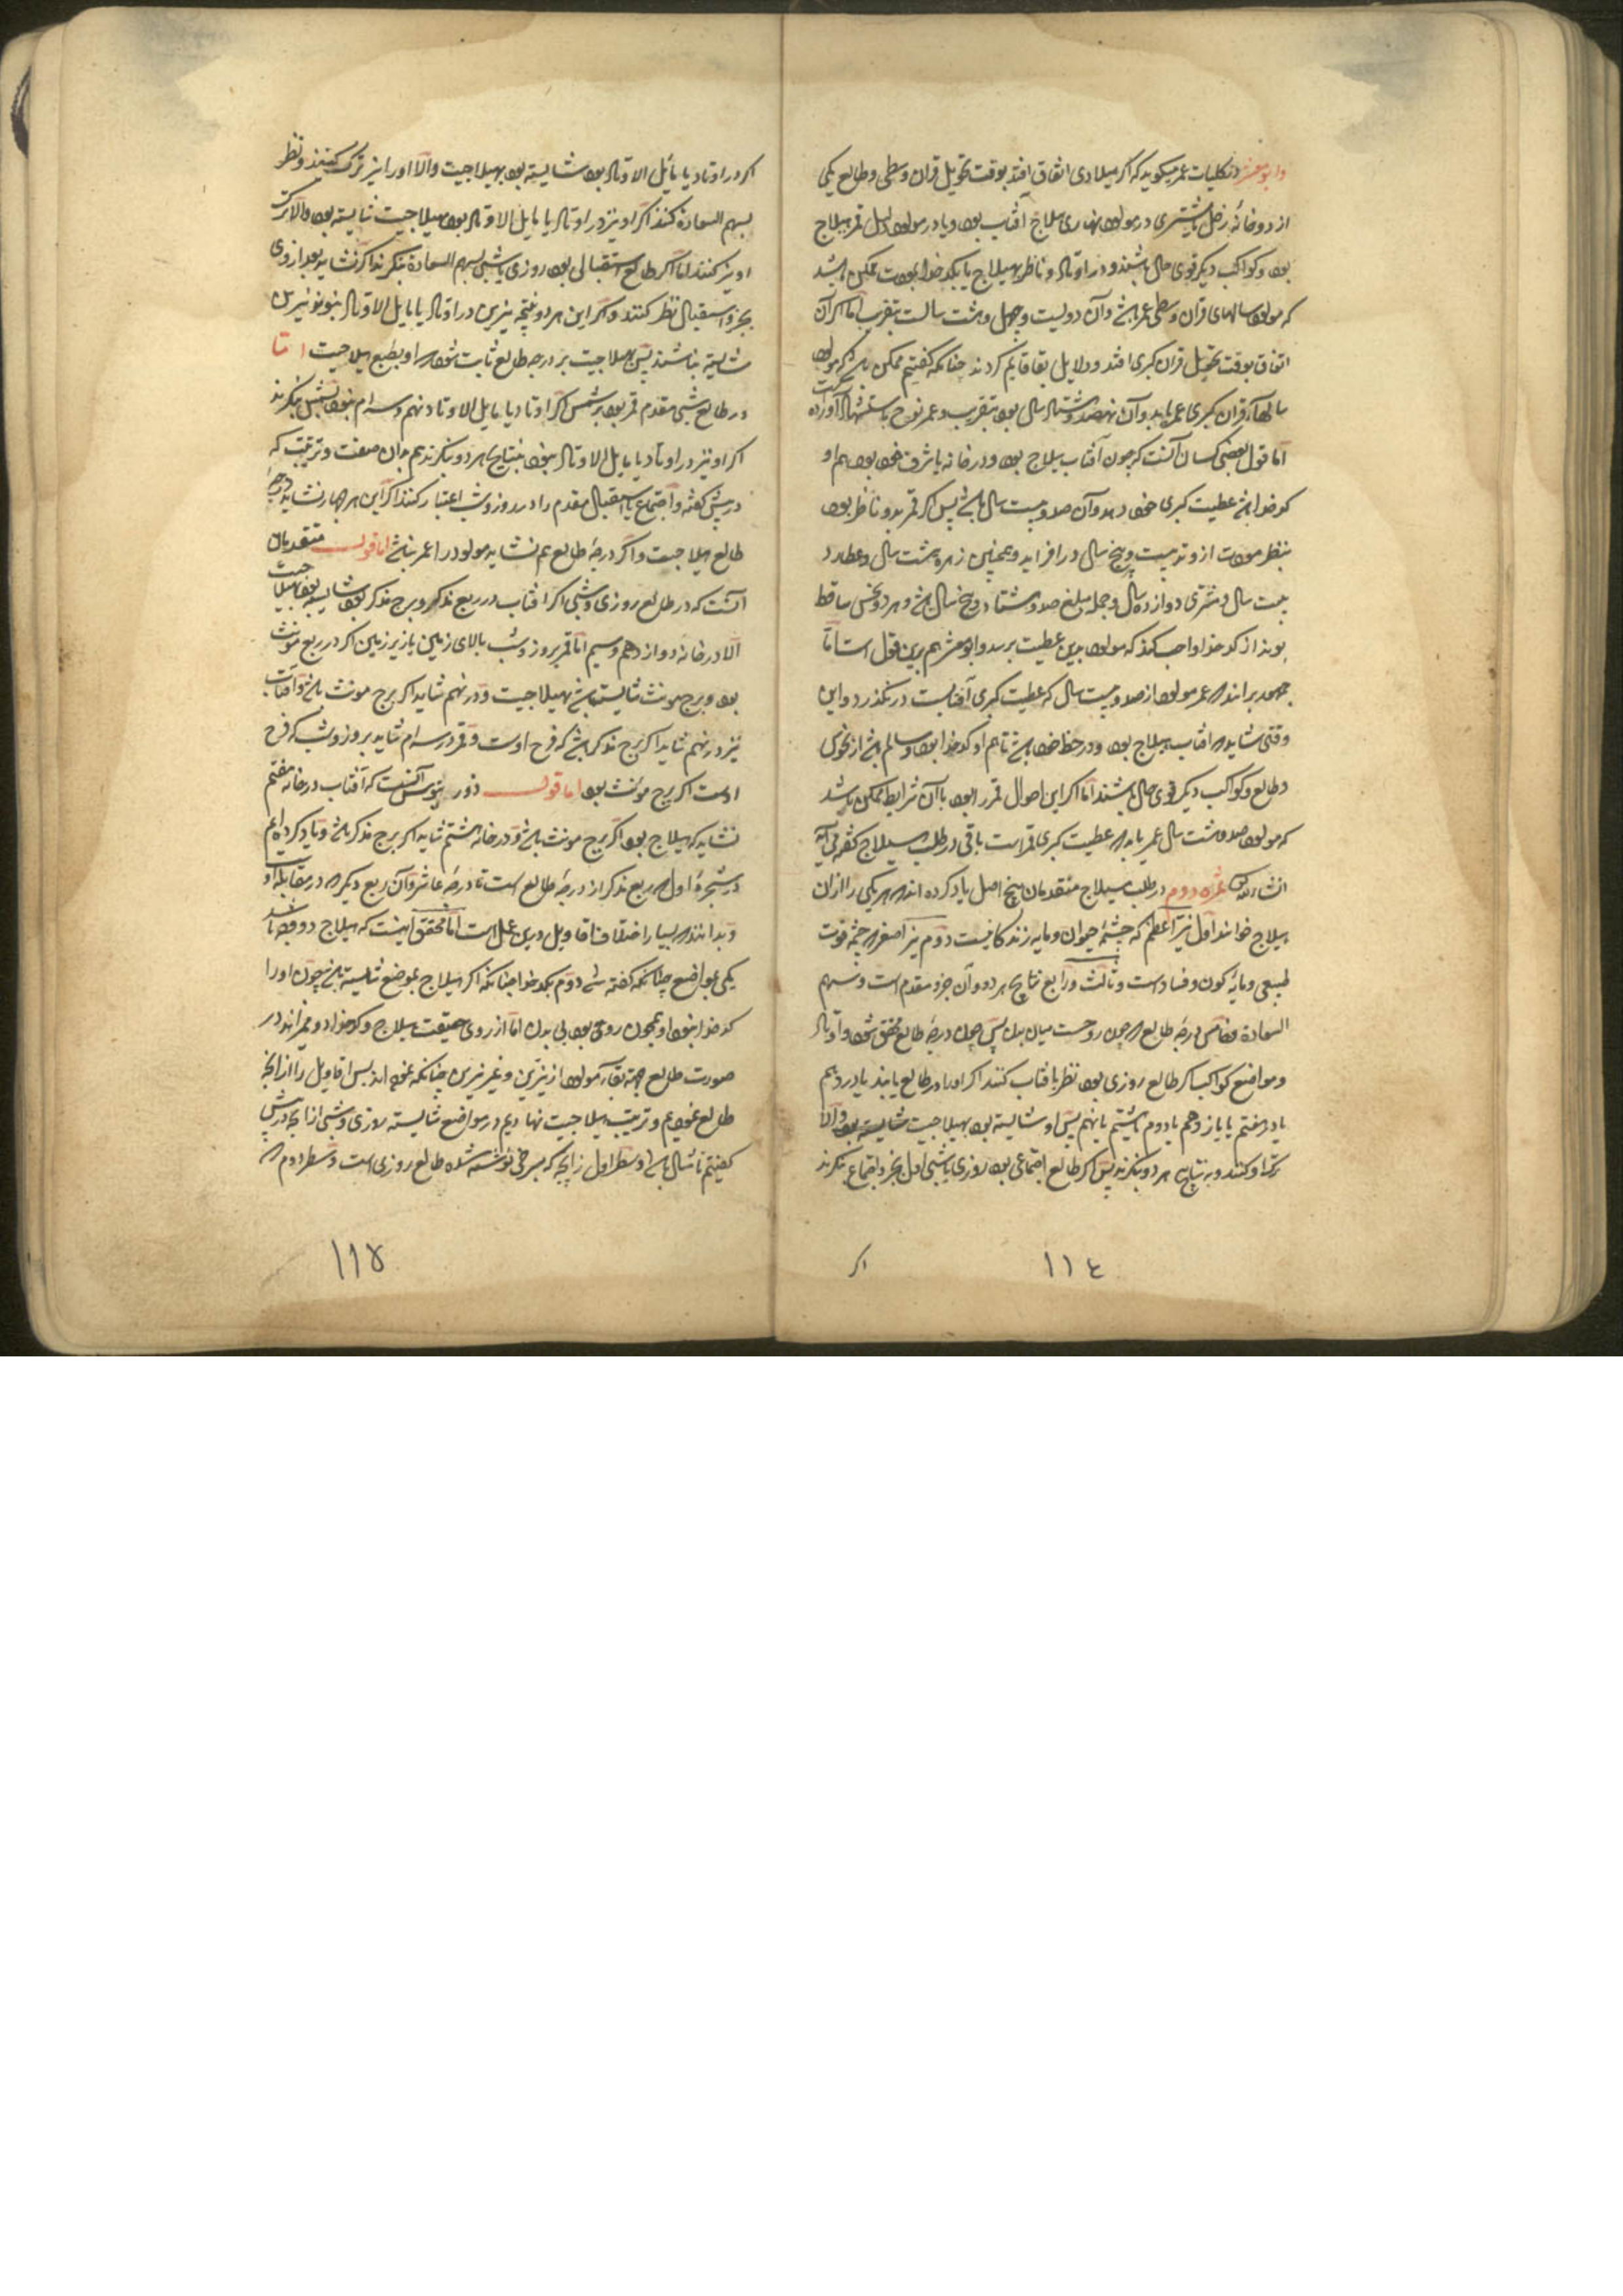 وابومعشر در کلیات عمر میکوید که اکر میلادی اتفاق افتد بوقت تحویل قران وسطی وطالع یکی
از دو خانهٔ زحل یا مشتری در مولود نهاری هیلاج آفتاب بود ویا در مولود لیل قمر هیلاج
بود وکواکب دیکر قوی حال باشند و در اوتاد و ناظر بهیلاج یا بکدخدا بمودت ممکن باشد
که مولود سالهای قران وسطی عمر باشد وآن دویست وچهل وهشت سالست بتقریب اما اکر آن
اتفاق بوقت تحویل قران کبری افتد و دلایل بقا قایم کردند چنانکه کفتیم ممکن باشد که مولود
سالهاء قران کبری عمر یابد وآن نهصد وشصت سال بود بتقریب وعمر نوح باستشهاد آورده
اما قول بعضی کسان آنست که چون آفتاب هیلاج بود ودر خانه یا شرف خود بود هم او
کدخدا باشد عطیت کبری خود دهد وآن صد وبیست سال باشد پس اکر قمر بدو ناظر بود
بنظر مودت از وتد بیست وپنج سال در افزاید وهمچنین زهره هشت سال وعطارد
بیست سال ومشتری دوازده سال وجمله مبلغ صد وهشتاد وپنج سال باشد وهر دو نحس ساقط
بوند از کدخدا واجب کند که مولود بدین عطیت برسد وابومعشر هم برین قول است اما
جمهور برانند که عمر مولود از صد وبیست سال که عطیت کبری آفتابست در نکذرد واین
وقتی شاید که آفتاب هیلاج بود ودر حظ خود باشد تا هم او کدخدا بود وسالم باشد از نحوس
وطالع وکواکب دیکر قوی حال باشند اما اکر این اصول قمر را بود با آن شرایط ممکن باشد
که مولود صد وهشت سال عمر یابد که عطیت کبری قمر است باقی در طلب هیلاج کفته می آید
انشاءالله ثمره دوم در طلب هیلاج متقدمان پنج اصل یاد کرده اند که هر یکی را ازان
هیلاج خوانند اول نیر اعظم که چشمهٔ حیوان ومایه زندکانیست دوم نیر اصغر که چشمه قوت
طبیعی ومایهٔ کون وفساد است وثالث ورابع نتایج هر دو وآن جزو مقدم است وسهم
السعاده وخامس درجهٔ طالع که چون روحست میان بدن پس چون درجهٔ طالع محقق شود واوتاد
ومواضع کواکب اکر طالع روزی بود نظر بافتاب کنند اکر او را در طالع یابند یا در دهم
یا در هفتم یا یازدهم یا دوم یا هشتم یا نهم پس او شایسته بود بهیلاجیت شایسته بود والا
ترک او کنند وبه نتایج هر دو بنکرند پس اکر طالع اجتماعی بود روزی یا شبی اول بجزو اجتماع بنکرند
اکر
١١٤
اکر در اوتاد یا مایل الاوتاد بود شایسته بود بهیلاجیت والا او را نیز ترک کنند ونظر
بسهم السعادة کنند اکر او نیز در اوتاد یا مایل الاوتاد بود هیلاجیت شایسته بود والا ترک
او نیز کنند اما اکر طالع استقبالی بود روزی یا شبی بسهم السعادة بنکرند اکر نشاید بعد از وی
بجزو استقبال نظر کنند واکر این هر دو نتیجه نیرین در اوتاد یا مایل الاوتاد نبوند ونیرین
شایسته نباشند پس هیلاجیت بر درجه طالع ثابت شود که او بطبع هیلاجیست اما
در طالع شبی مقدم قمر بود بر شمس اکر در اوتاد یا مایل الاوتاد ونهم وسه ام نبود بشمس بنکرند
اکر او نیز در اوتاد یا مایل الاوتاد نبود بنتایج هر دو بنکرند هم بدان صفت وترتیب که
در پیش کفته واجتماع یا استقبال مقدم را در روز وشب اعتبار کنند اکر این هر چهار نشاید درجهٔ
طالع هیلاجست واکر درجهٔ طالع هم نشاید مولود را عمر نباشد اما قول متقدمان
آنست که در طالع روزی وشبی اکر افتاب در ربع مذکر وبرج مذکر بود شایسته بود بهیلاجیت
الا در خانهٔ دوازدهم وسیم اما قمر بروز وشب بالای زمین یا زیر زمین اکر در ربع مونث
بود وبرج مونث شایسته باشد بهیلاجیت ودر نهم شاید اکر برج مونث باشد وآفتاب
نیز در نهم شاید اکر برج مذکر باشد که فرح اوست وقمر در سه ام شاید بروز وشب که فرح
اوست اکر برج مونث بود اما قول ذورثیوس آنست که آفتاب در خانه هفتم
نشاید که هیلاج بود اکر برج مونث باشد ودر خانه هشتم شاید اکر برج مذکر باشد ویاد کرده ایم
در شجرهٔ اول که ربع مذکر از درجهٔ طالع است تا درجهٔ عاشر وآن ربع دیکر که در مقابلهٔ او
وبدانند که بسیار اختلاف اقاویل درین عمل است اما محقق اینست که هیلاج دو وجه باشد
یکی بمواضع چنانکه کفته شد دوم بکدخدا چنانکه اکر هیلاج بموضع شایسته باشد چون او را
کدخدا نبود او همچون روحی بود بی بدن اما از روی حقیقت هیلاج وکدخدا دو مخبراند در
صورت طالع جهة بقاء مولود از نیرین وغیر نیرین چنانکه نموده اند پس اقاویل را از زایجه
طالع نمودیم وترتیب هیلاجیت نهادیم در مواضع شایسته روزی وشبی ازانچه در پیش
کفتیم تا مثال باشد وسطر اول زایچه که بسرخی نوشته شده طالع روزی است وسطر دوم که
١١٥